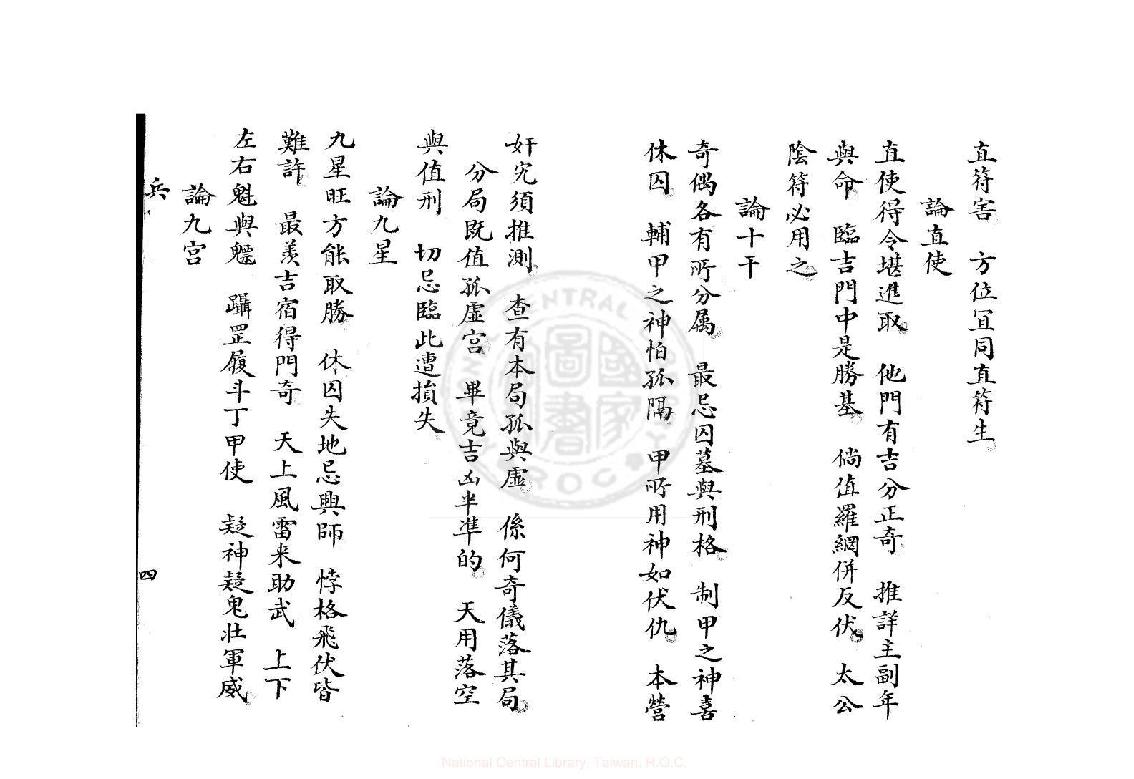 直符害　方位宜同直符生
論直使
直使得令堪進取　他門有吉分正奇　推詳主副年
與命　臨吉門中是勝基　倘值羅網併反伏　太公
陰符必用之
論十干
奇偶各有所分属　最忌囚墓與刑格　制甲之神喜
休囚　輔甲之神怕孤隔　甲所用神如伏仇　本營
奸宄須推測　查有本局孤與虛　係何奇儀落其局
分局既值孤虛宮　畢竟吉凶半準的　天用落空
與值刑　切忌臨此遭損失
論九星
九星旺方能取勝　休囚失地忌興師　悖格飛伏皆
難許　最羨吉宿得門奇　天上風雷来助武　上下
左右魁與魒　躡罡履斗丁甲使　疑神疑鬼壯軍威
論九宮
兵
四
NATIONAL CENTRAL LIBRARY
國家圖書館
R.O.C.
National Central Library, Taiwan, R.O.C.